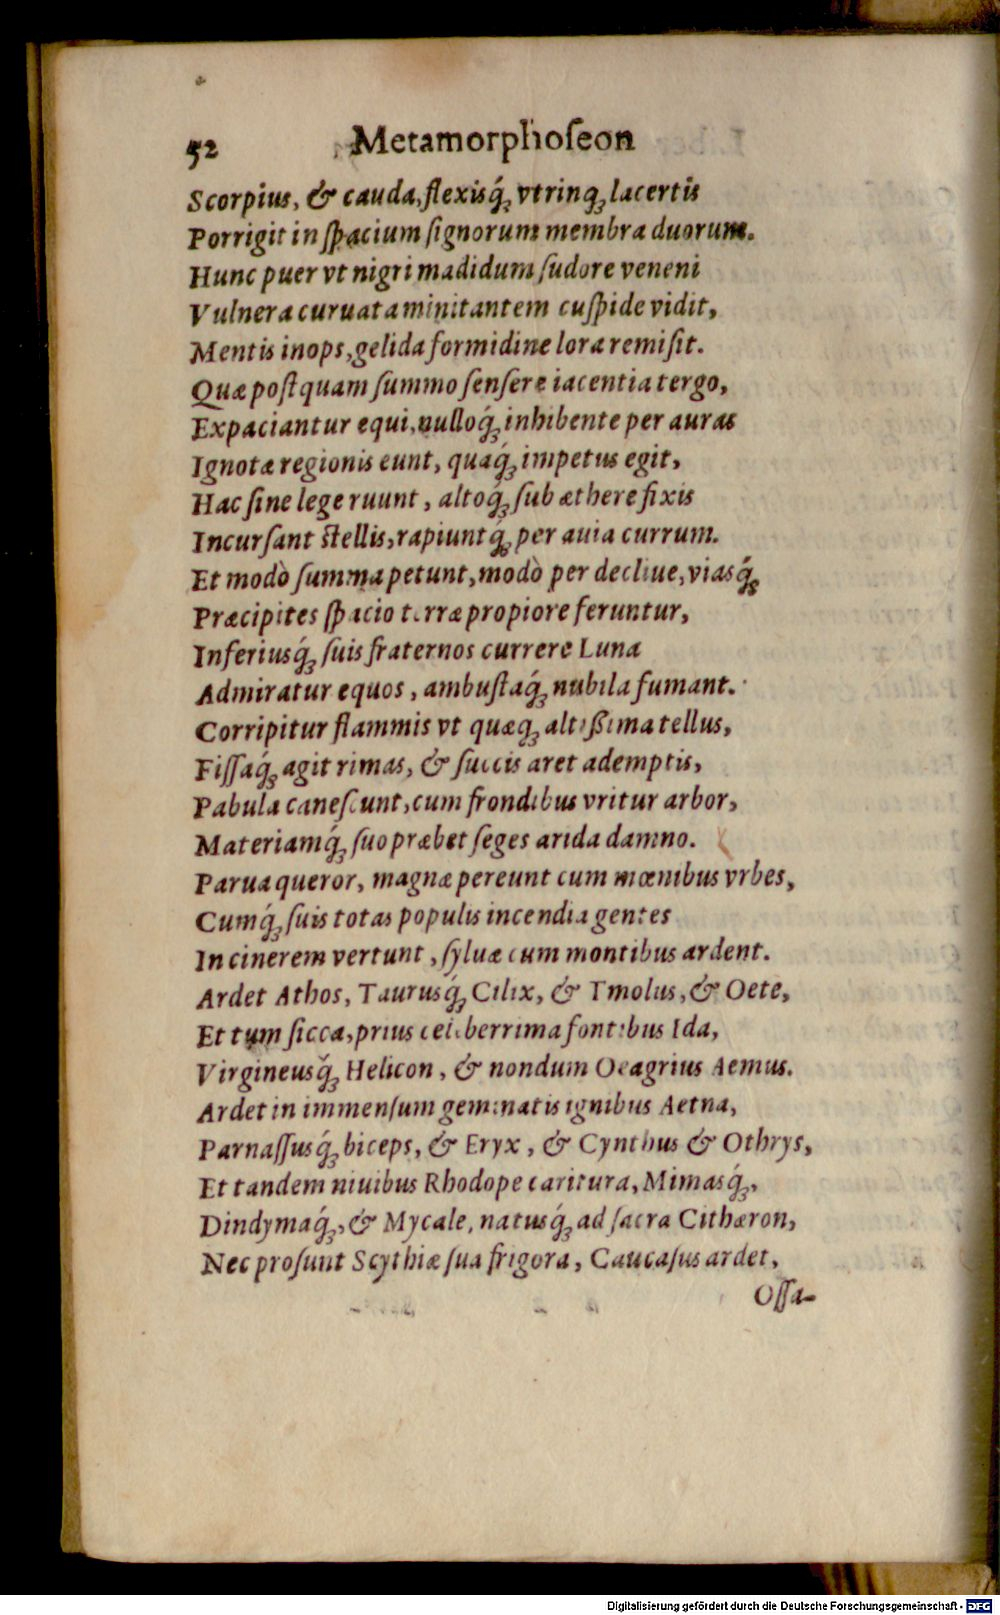 52 Metamorphoseon
Scorpius, & cauda, flexisq́ꝫ vtrinqꝫ lacertis
Porrigit in ſpacium ſignorum membra duorum.
Hunc puer vt nigri madidum ſudore veneni
Vulnera curuata minitantem cuſpide vidit,
Mentis inops, gelida formidine lora remiſit.
Quæ poſtquam ſummo ſenſere iacentia tergo,
Expaciantur equi, nulloq́ꝫ inhibente per auras
Ignotæ regionis eunt, quaq́ꝫ impetus egit,
Hac ſine lege ruunt, altoq́ꝫ ſub æthere fixis
Incurſant ſtellis, rapiuntq́ꝫ per auia currum.
Et modò ſumma petunt, modò per decliue, viasq́ꝫ
Præcipites ſpacio terræ propiore feruntur,
Inferiusq́ꝫ ſuis fraternos currere Luna
Admiratur equos, ambuſtaq́ꝫ nubila fumant.
Corripitur flammis vt quæqꝫ altißima tellus,
Fiſſaq́ꝫ agit rimas, & ſuccis aret ademptis,
Pabula caneſcunt, cum frondibus vritur arbor,
Materiamq́ꝫ ſuo præbet ſeges arida damno.
Parua queror, magnæ pereunt cum mœnibus vrbes,
Cumq́ꝫ ſuis totas populis incendia gentes
In cinerem vertunt, ſyluæ cum montibus ardent.
Ardet Athos, Taurusq́ꝫ Cilix, & Tmolus, & Oete,
Et tum ſicca, prius celeberrima fontibus Ida,
Virgineusq́ꝫ Helicon, & nondum Oeagrius Aemus.
Ardet in immenſum geminatis ignibus Aetna,
Parnaſſusq́ꝫ biceps, & Eryx, & Cynthus & Othrys,
Et tandem niuibus Rhodope caritura, Mimasq́ꝫ,
Dindymaq́ꝫ, & Mycale, natusq́ꝫ ad ſacra Cithæron,
Nec proſunt Scythiæ ſua frigora, Caucaſus ardet,
Oſſa-
Digitalisierung gefördert durch die Deutsche Forschungsgemeinschaft - DFG